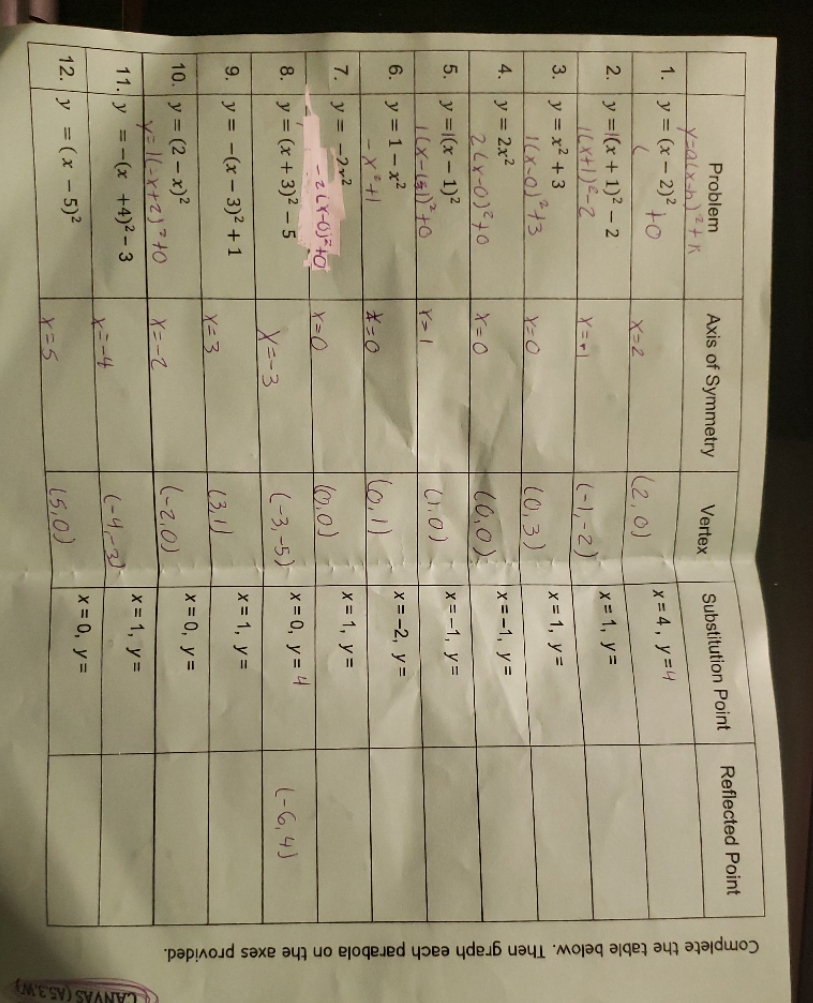 CANVAS (A5.3.W)
Complete the table below. Then graph each parabola on the axes provided.
Problem Axis of Symmetry Vertex Substitution Point Reflected Point
y=a(x-h)²+k
1. y = (x − 2)² +0 x=2 (2,0) x = 4, y = 4
2. y =1(x + 1)² − 2 x=-1 (-1,-2) x = 1, y =
1(x+1)²-2
3. y = x² + 3 x=0 (0,3) x = 1, y =
1(x-0)²+3
4. y = 2x² x=0 (0,0) x = −1, y =
2(x-0)²+0
5. y =1(x − 1)² x=1 (1,0) x = −1, y =
6. y = 1 − x² x=0 (0,1) x = −2, y =
-x²+1
7. y = −2x² x=0 (0,0) x = 1, y =
-2(x-0)²+0
8. y = (x + 3)² − 5 x=-3 (-3,-5) x = 0, y = 4 (-6,4)
9. y = −(x − 3)² + 1 x=3 (3,1) x = 1, y =
10. y = (2 − x)² x=-2 (-2,0) x = 0, y =
y=1(-x+2)²+0
11. y = −(x +4)² − 3 x=-4 (-4,-3) x = 1, y =
12. y = (x − 5)² x=5 (5,0) x = 0, y =